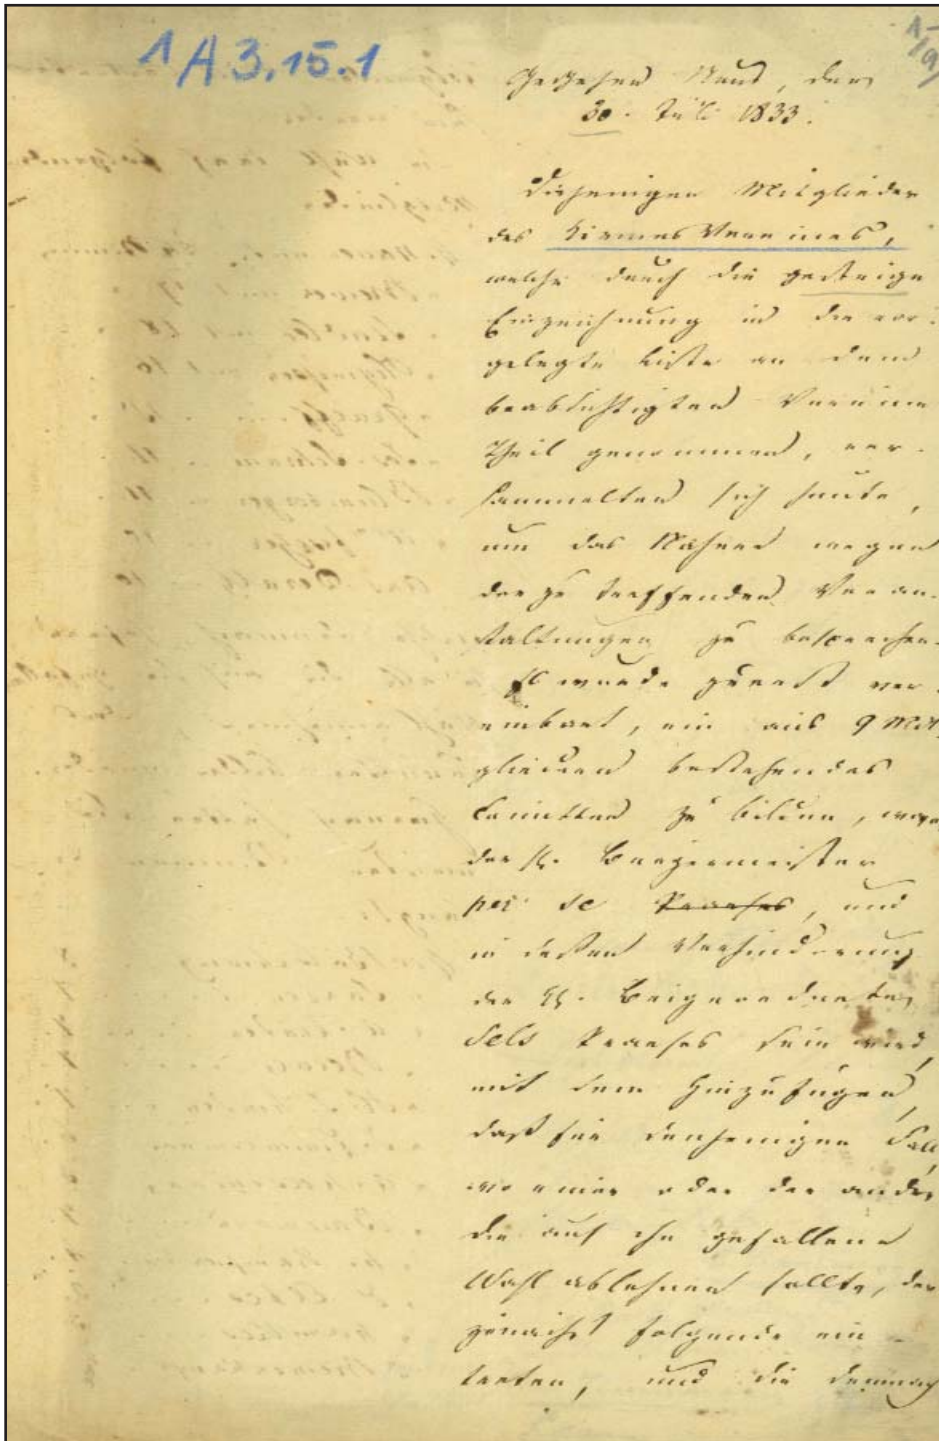 1A 3.15.1
Geschehen Neuss, den
30. Juli 1833.
Diejenigen Mitglieder
des Kirmes Vereines,
welche durch die gestrige
Einzeichnung in die vor-
gelegte Liste an dem
beabsichtigten Vereine
Theil genommen, ver-
sammelten sich heute,
um das Nähere wegen
der zu treffenden Veran-
staltungen zu besprechen.
Es wurde zuerst ver-
einbart, ein aus 9 Mit-
gliedern bestehendes
Comittee zu bilden, wovon
der H. Bürgermeister
per se Praeses, und
in dessen Verhinderung
der H. Beigeordnete
Sels Praeses sein wird,
mit dem Hinzufügen,
daß für denjenigen Fall,
wo einer oder der andere
die auf ihn gefallene
Wahl ablehnen sollte, der
zunächst folgende ein-
treten, und die demnach